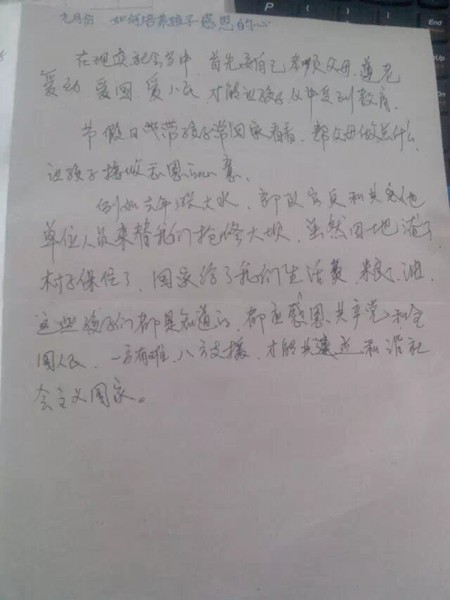 元月份 如何培养孩子感恩的心
在现实社会当中，首先要自己孝顺父母，尊老
爱幼，爱国，爱人民，才能让孩子从中受到教育。
节假日带孩子常回家看看，帮父母做点什么，
让孩子接收感恩的心意。
例如六年级大水，部政官兵和其它他
单位人员来替我们抢修大坝，虽然田地淹了，
村子保住了，国家给了我们生活费，粮、油，
这些孩子们都是知道的，都应感恩共产党和全
国人民，一方有难，八方支援，才能共建和谐社
会主义国家。